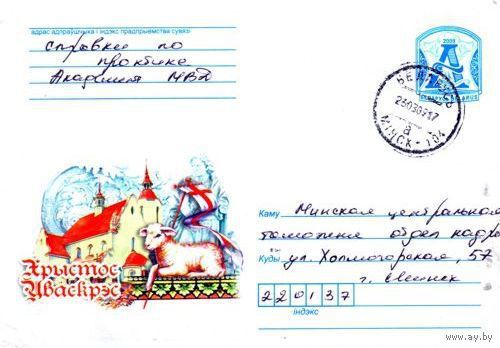 адрас адпраўшчыка і індэкс прадпрыемства сувязі
справки по
практике
Академия МВД
2009
А
БЕЛАРУСЬ BELARUS
БЕЛАРУСЬ
260309 17
а
МІНСК - 104
Хрыстос
Уваскрэс
Каму Минская центральная
таможня отдел кадро
Куды ул. Холмогорская, 57
г. Минск
220137
індэкс
www.ay.by